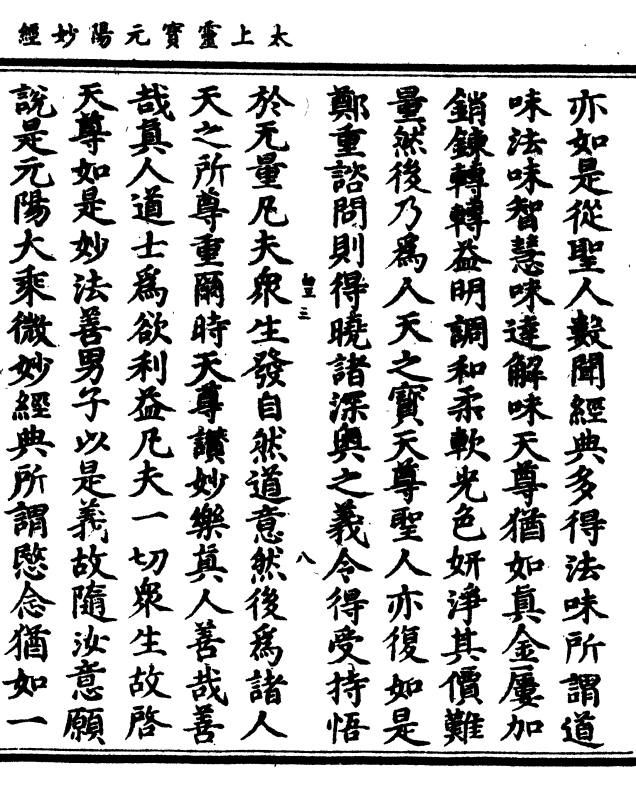 太上靈寶元陽妙經
亦如是從聖人數聞經典多得法味所謂道
味法味智慧味達解味天尊猶如真金屢加
銷鍊轉轉益明調和柔軟光色姸淨其價難
量然後乃爲人天之寶天尊聖人亦復如是
鄭重諮問則得曉諸深奧之義令得受持悟
皇三
八
於无量凡夫衆生發自然道意然後爲諸人
天之所尊重爾時天尊讃妙樂真人善哉善
哉真人道士爲欲利益凡夫一切衆生故啓
天尊如是妙法善男子以是義故隨汝意願
說是元陽大乘微妙經典所謂愍念猶如一